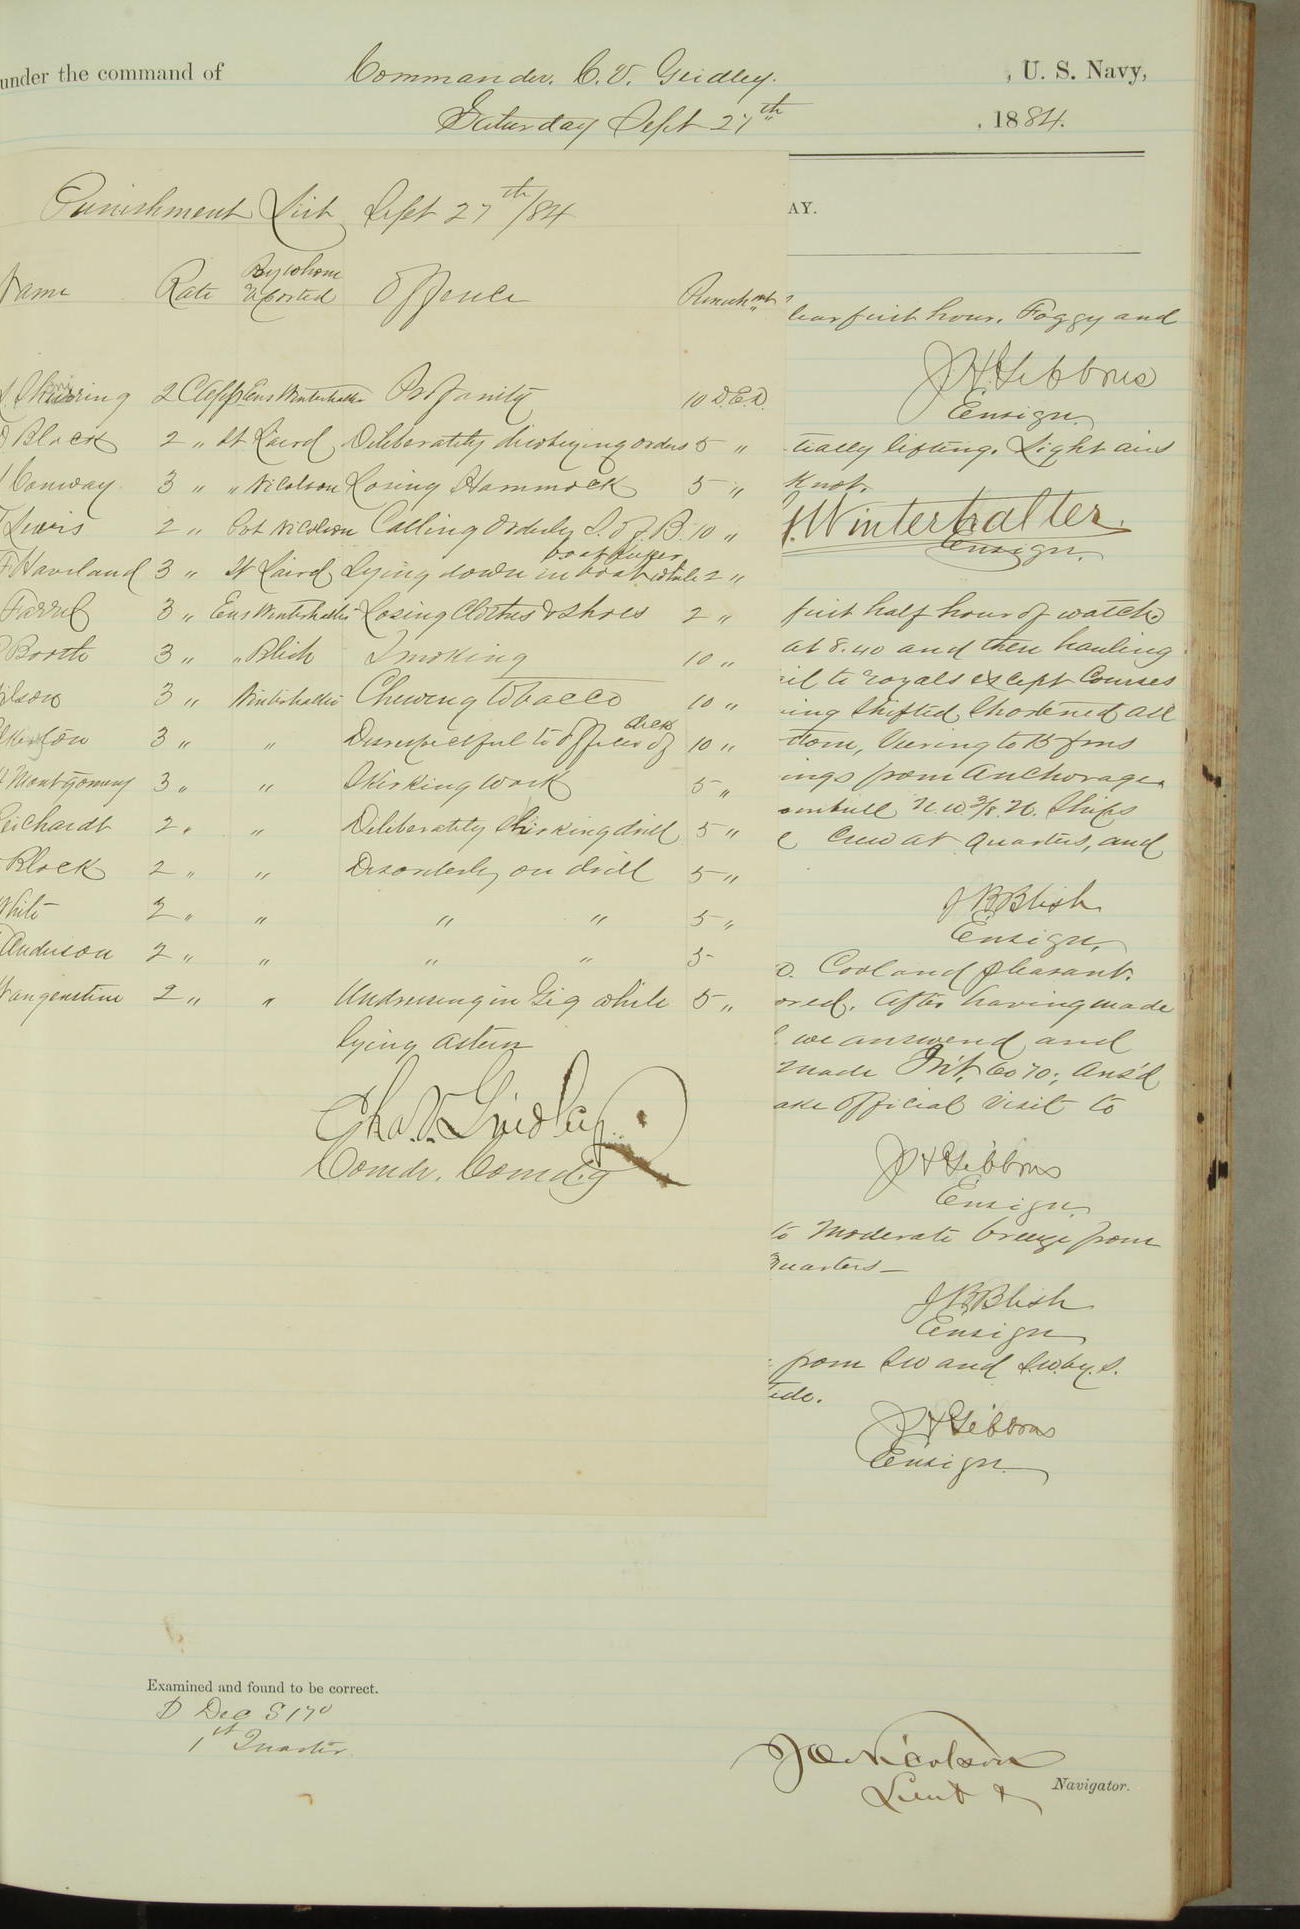 under the command of Commander. C. V. Gridley. , U. S. Navy,
Saturday Sept 27th , 1884.
Punishment List Sept 27th/84
AY.
Name Rate By whom reported Offence Punishmt
2 C app Ens Winterhalter Profanity 10 D.E.D.
Block 2 " Lt Laird Deliberately disobeying orders 5 "
Conway 3 " " Nicolson Losing Hammock 5 "
Lewis 2 " Lt Nicolson Calling Orderly S. of B. 10 "
Haviland 3 " Lt Laird Lying down in boat while boat keeper 2 "
Farrel 3 " Ens Winterhalter Losing Clothes & Shoes 2 "
Booth 3 " " Blish Smoking 10 "
ilson 3 " Winterhalter Chewing tobacco 10 "
3 " " Disrespectful to officer of deck 10 "
Montgomery 3 " " Skirking work 5 "
eichardt 2 " " Deliberately skirking drill 5 "
Block 2 " " Disorderly on drill 5 "
White 2 " " " " 5 "
Anderson 2 " " " " 5
angenstine 2 " " Undressing in Gig while 5 "
lying astern
Chas. V. Gridley
Comdr. Comd'g
lear first hour. Foggy and
J H Gibbons
Ensign
tially lifting. Light airs
Knot.
Winterhalter.
Ensign.
first half hour of watch
at 8.40 and then hauling
ail to royals except Courses
ing shifted. Shortened all
ttom, Veering to 15 fms
ings from anchorage
N.W. 3/8 N. Ships
Crew at quarters, and
J B Blish
Ensign.
Cool and pleasant.
ored. After having made
we answered and
made Int. 6070; Ans'd
ake official visit to
J H Gibbons
Ensign.
to moderate breeze from
quarters—
J B Blish
Ensign
from SW and S.W. by. S.
tide.
J H Gibbons
Ensign
Examined and found to be correct.
D Dec S 17°
1st Quarter
Nicolson
Lieut & Navigator.